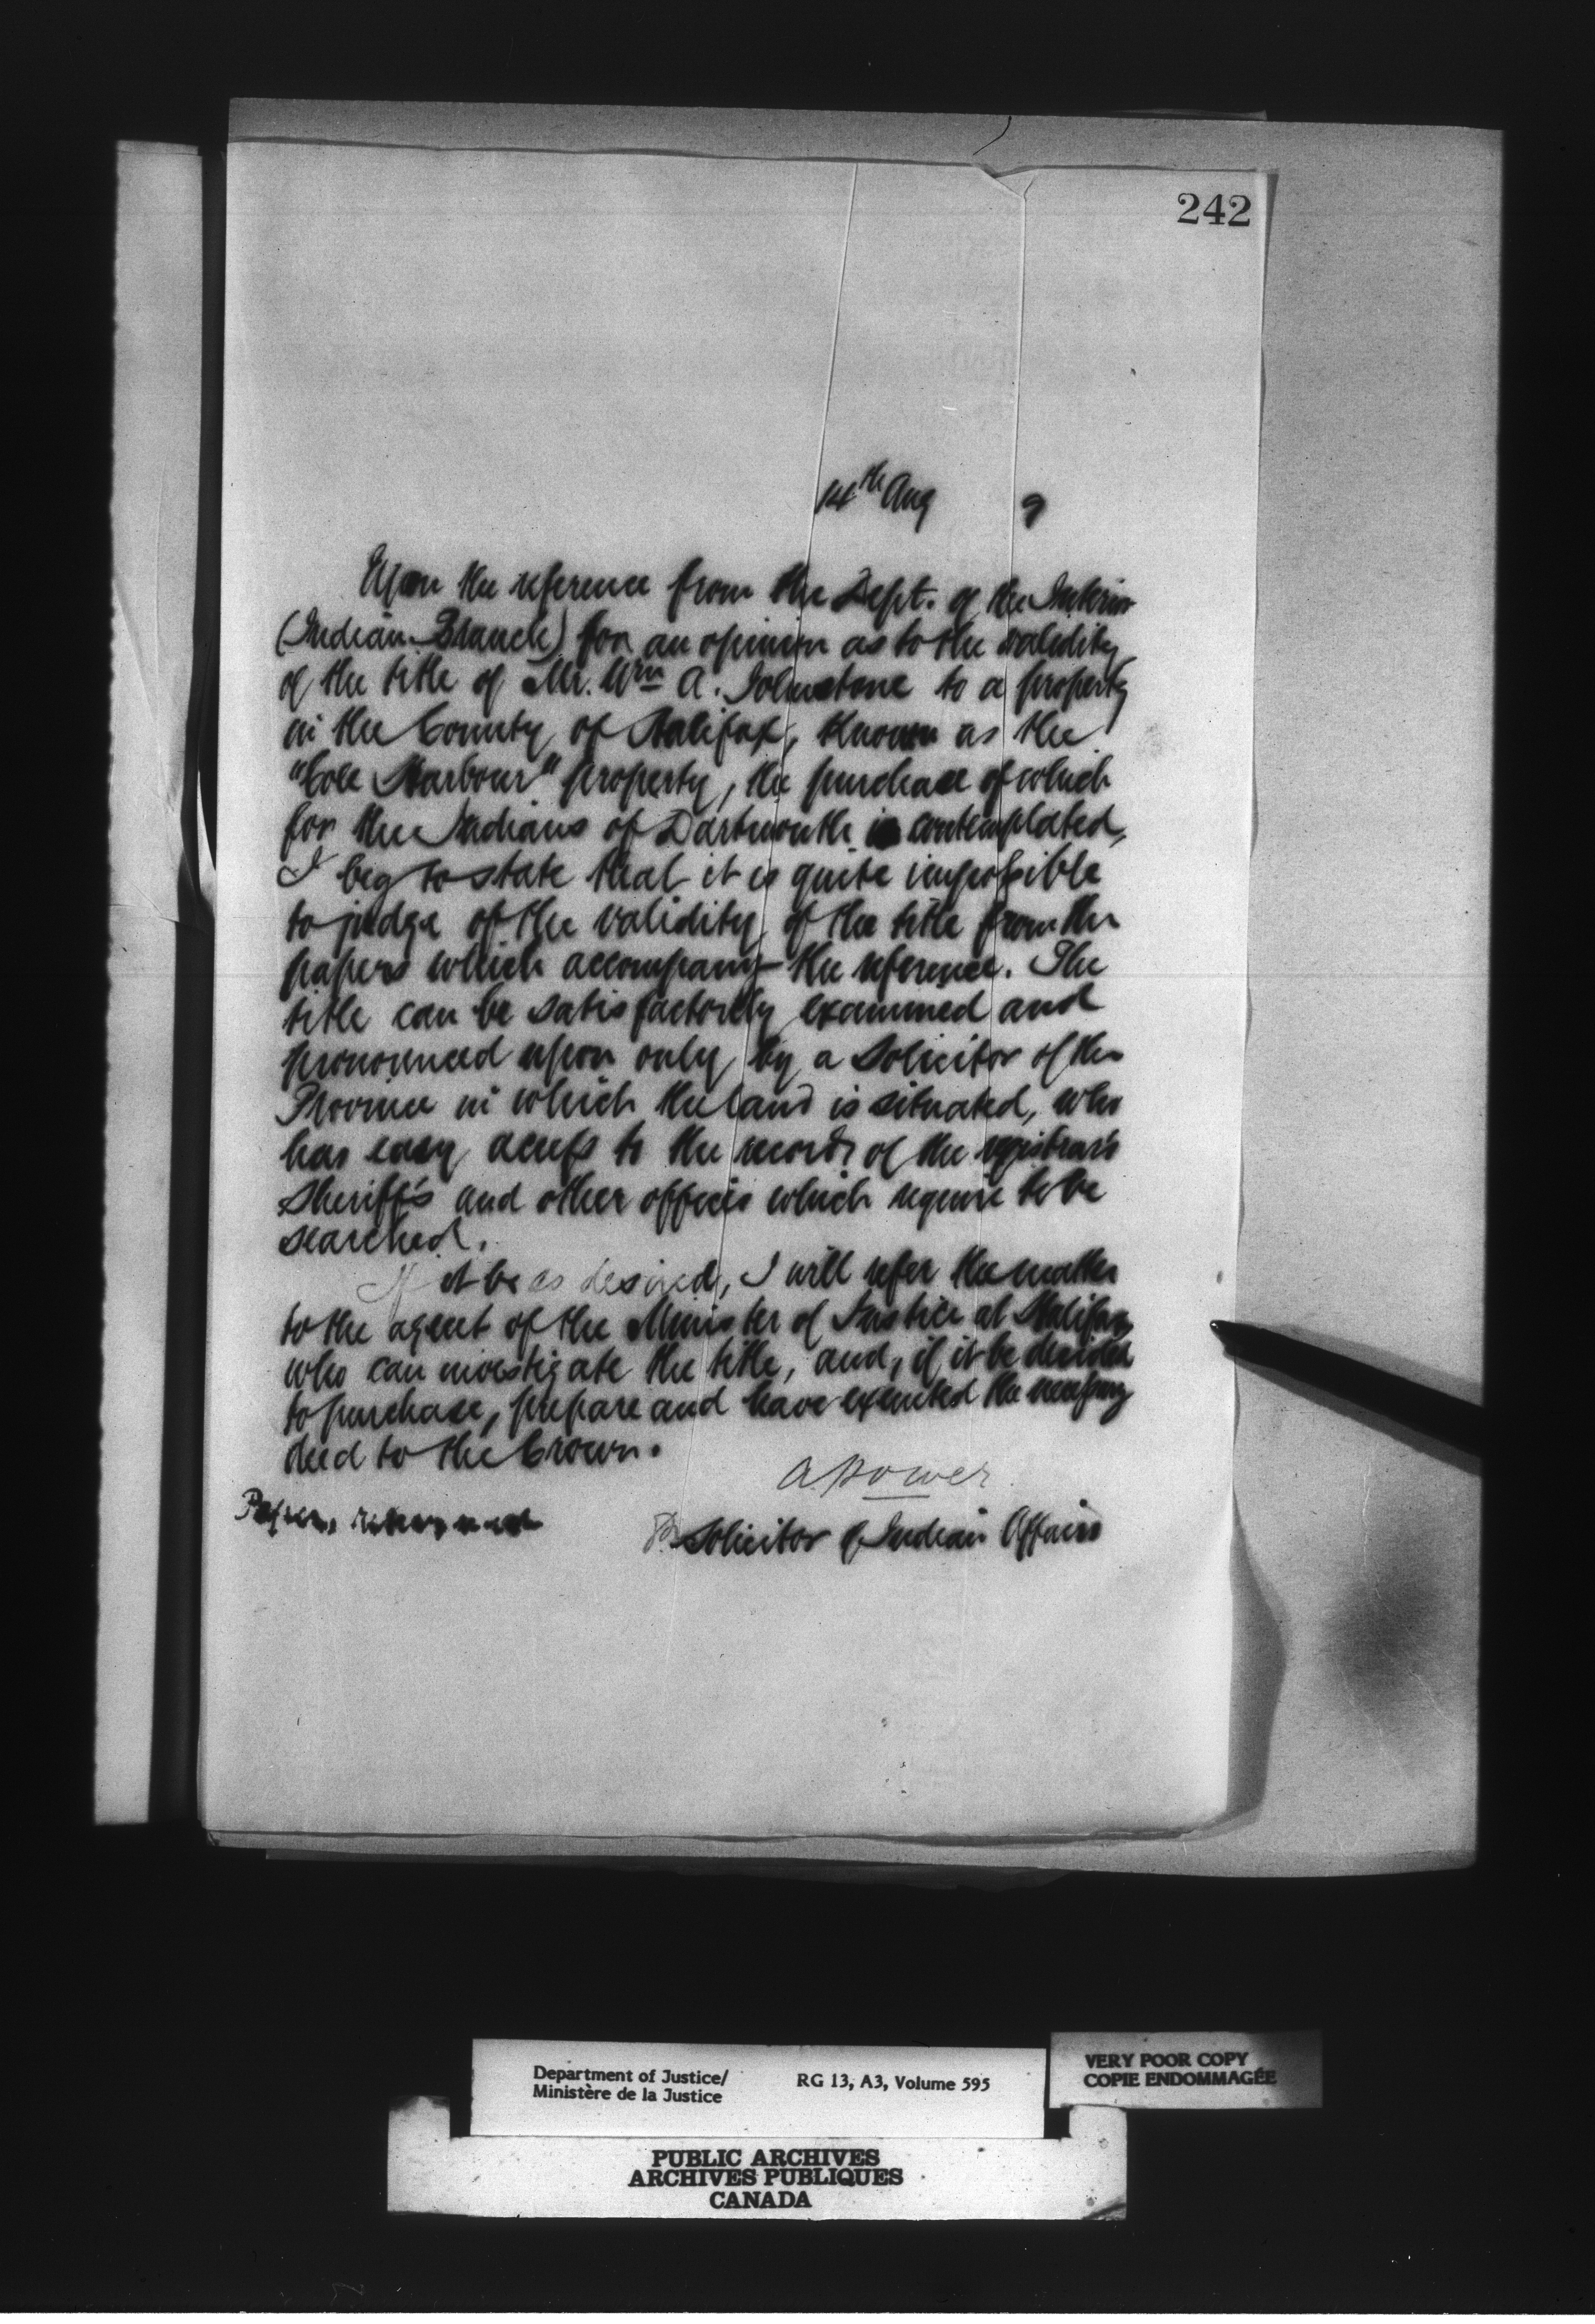 242
14th Aug 9
Upon the reference from the Dept. of the Interior
(Indian Branch) for an opinion as to the validity
of the title of Mr. Wm A. Johnstone to a property
in the County of Halifax, known as the
"Cole Harbour" property, the purchase of which
for the Indians of Dartmouth is contemplated,
I beg to state that it is quite impossible
to judge of the validity of the title from the
papers which accompany the reference. The
title can be satisfactorily examined and
pronounced upon only by a Solicitor of the
Province in which the land is situated, who
has easy access to the records of the registrar's
Sheriff's and other offices which require to be
searched.
If it be as desired, I will refer the matter
to the agent of the Minister of Justice at Halifax
who can investigate the title, and, if it be decided
to purchase, prepare and have executed the necessary
deed to the Crown.
A. Power
Papers returned
Solicitor of Indian Affairs
Department of Justice/
Ministère de la Justice
RG 13, A3, Volume 595
VERY POOR COPY
COPIE ENDOMMAGÉE
PUBLIC ARCHIVES
ARCHIVES PUBLIQUES
CANADA